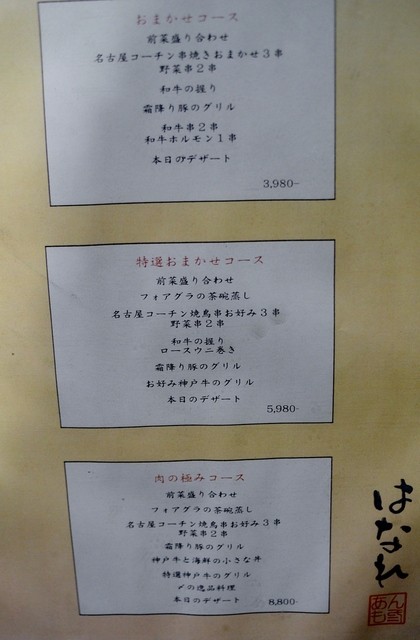 おまかせコース
前菜盛り合わせ
名古屋コーチン串焼きおまかせ３串
野菜串２串
和牛の握り
霜降り豚のグリル
和牛串２串
和牛ホルモン１串
本日のデザート
3,980-
特選おまかせコース
前菜盛り合わせ
フォアグラの茶碗蒸し
名古屋コーチン焼鳥串お好み３串
野菜串２串
和牛の握り
ロースウニ巻き
霜降り豚のグリル
お好み神戸牛のグリル
本日のデザート
5,980-
肉の極みコース
前菜盛り合わせ
フォアグラの茶碗蒸し
名古屋コーチン焼鳥串お好み３串
野菜串２串
霜降り豚のグリル
神戸牛と海鮮の小さな丼
特選神戸牛のグリル
〆の逸品料理
本日のデザート
8,800-
はなれ